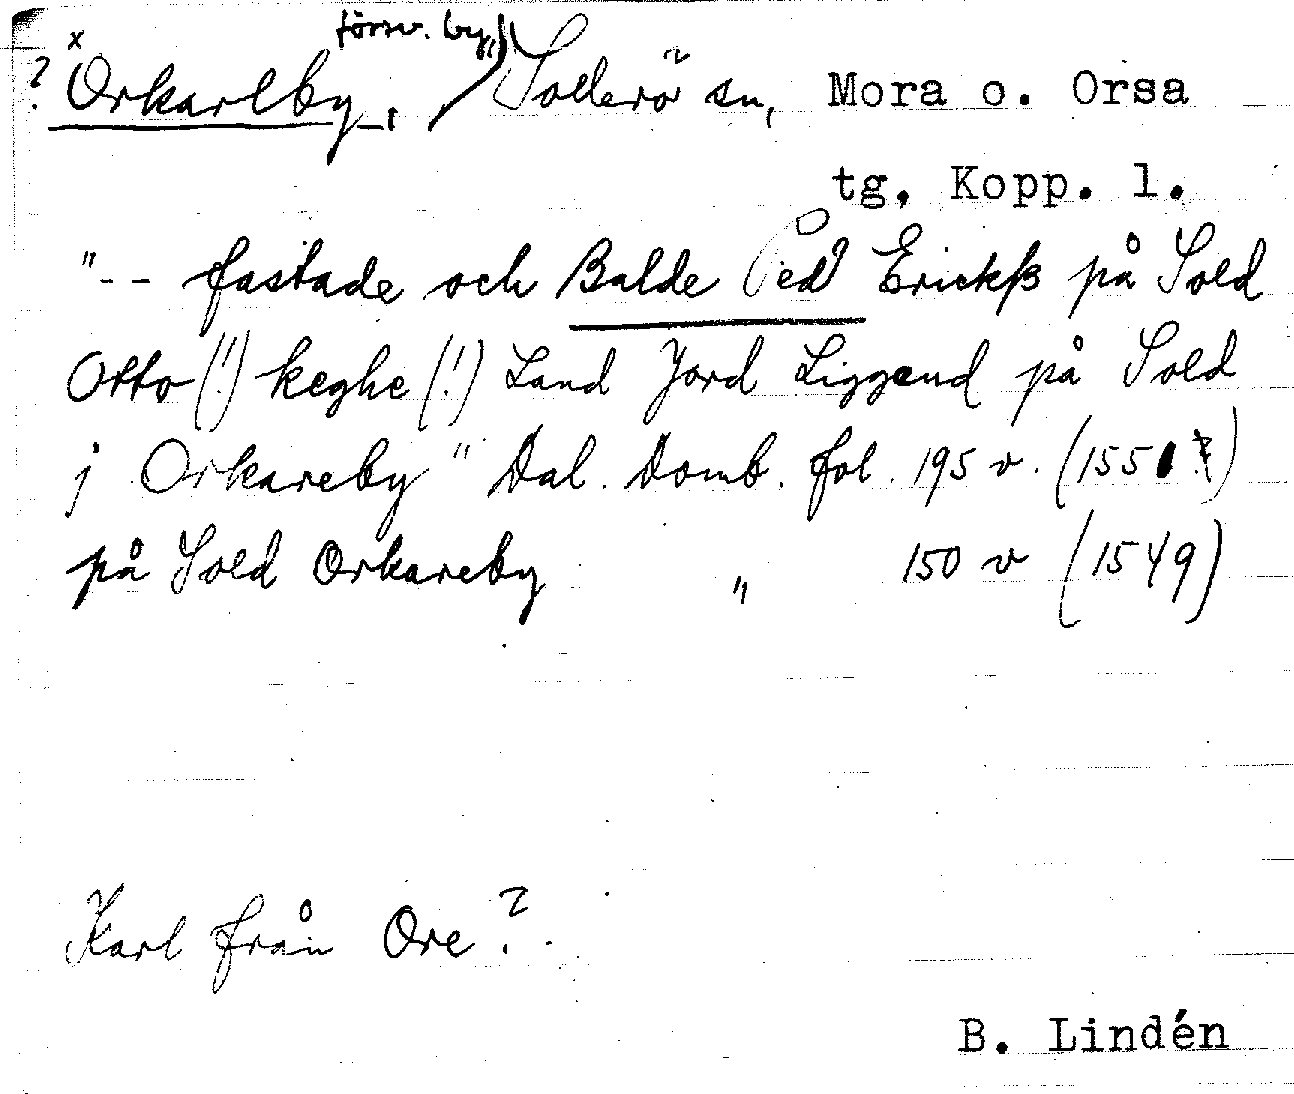 försv. by,
? x Orkarlby, Sollerö sn, Mora o. Orsa
tg, Kopp. l.
"-- fastade och Balde Ped Erickß på Sold
Otto (!) keghe (!) Land Jord Liggend på Sold
j Orkareby" Dal. Domb. fol. 195 v. (1551)
på Sold Orkareby " 150 v (1549)
Karl från Ore?
B. Lindén